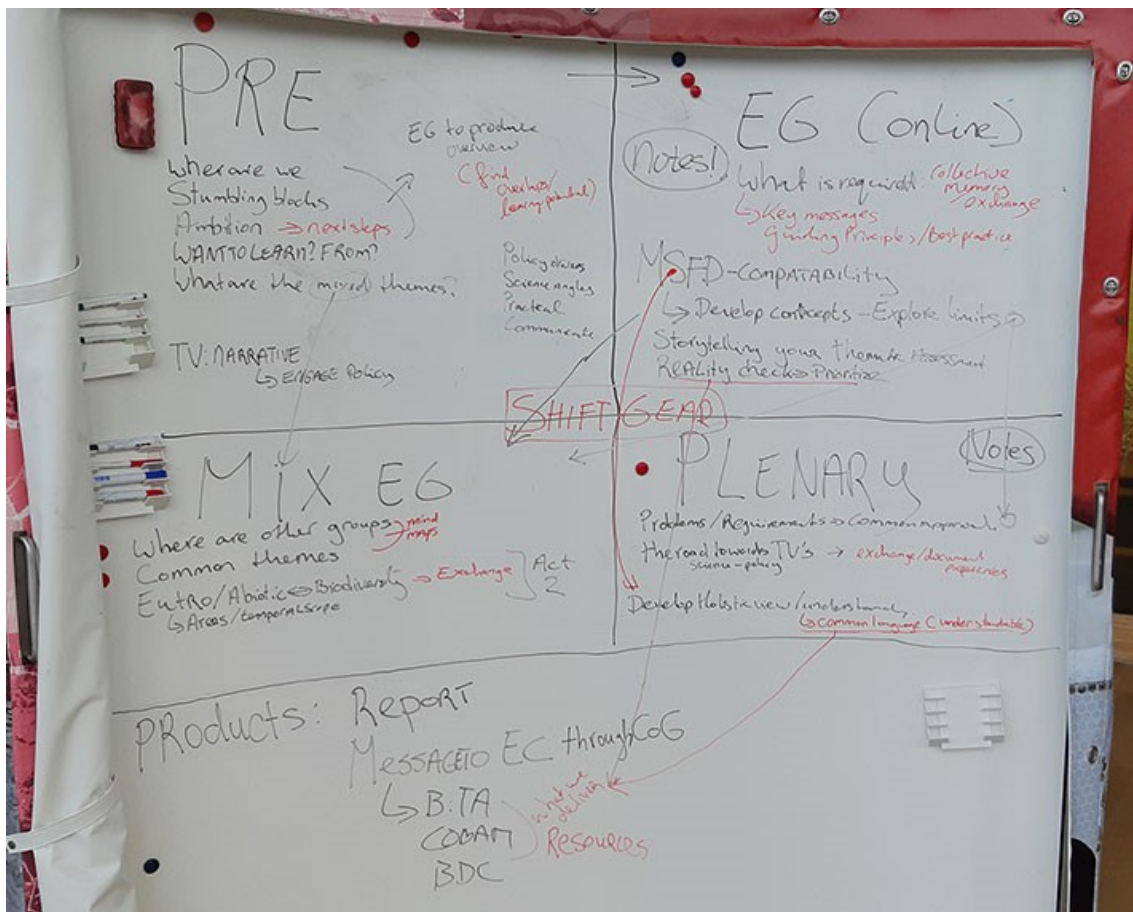 PRE
Where are we
Stumbling blocks
Ambition → next steps
WANT TO LEARN? FROM?
What are the mixed themes?
TV: NARRATIVE
↳ ENGAGE POLICY
EG to produce
overview
(find
overlaps/
learning potential)
Policy drivers
Science angles
Practical
Communicate
EG (online)
Notes!
What is required:
Collective
memory
/exchange
↳ Key messages
Guiding Principles/Best practice
MSFD-COMPATABILITY
↳ Develop concepts - Explore limits
Storytelling your thematic Assessment
REALity check → Prioritize
SHIFT GEAR
MIX EG
Where are other groups → mind
maps
Common themes
EUTRO/Abiotic ↔ Biodiversity → Exchange
↳ Areas/temporal scope
Act
2
PLENARY
Notes
Problems/Requirements → Common approach.
the road towards TV's → exchange/document
science-policy
experiences
Develop Holistic view/understand.
↳ common language (understandable)
PRODUCTS: REPORT
MESSAGE TO EC through CoG
↳ B:TA
COBAM
BDC
what we
deliver
Resources